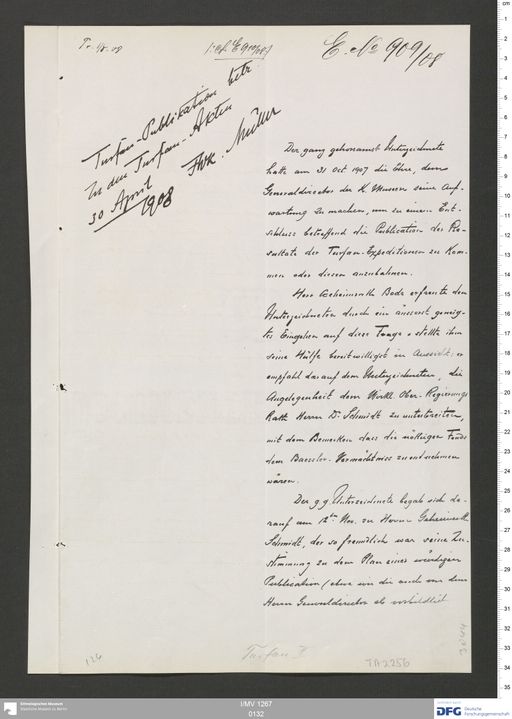 Pr. 4/5. 08
E. No 909/08
Turfan-Publikation betr.
Zu den Turfan-Akten
30 April 1908
FWK. Müller
Der ganz gehorsamst Unterzeichnete
hatte am 31 Oct 1907 die Ehre, dem
Generaldirector der K. Museen seine Auf-
wartung zu machen, um zu einem Ent-
schluss betreffend die Publication der Re-
sultate der Turfan-Expeditionen zu kom-
men oder diesen anzubahnen.
Herr Geheimrath Bode erfreute den
Unterzeichneten durch ein äusserst geneig-
tes Eingehen auf diese Frage u. stellte ihm
seine Hülfe bereitwilligst in Aussicht: er
empfahl darauf dem Unterzeichneten, die
Angelegenheit dem Wirkl. Ober-Regierungs
Rath Herrn Dr. Schmidt zu unterbreiten,
mit dem Bemerken dass die nöthigen Fonds
dem Baessler-Vermächtniss zu entnehmen
wären.
Der g. g. Unterzeichnete begab sich da-
rauf am 12ten Nov. zu Herrn Geheimrath
Schmidt, der so freundlich war seine Zu-
stimmung zu dem Plan einer würdigen
Publication (etwa wie die auch von dem
Herrn Generaldirector als vorbildlich
Turfan I
TA 2256
126
Ethnologisches Museum
Staatliche Museen zu Berlin
I/MV 1267
0132
DFG Deutsche
Forschungsgemeinschaft